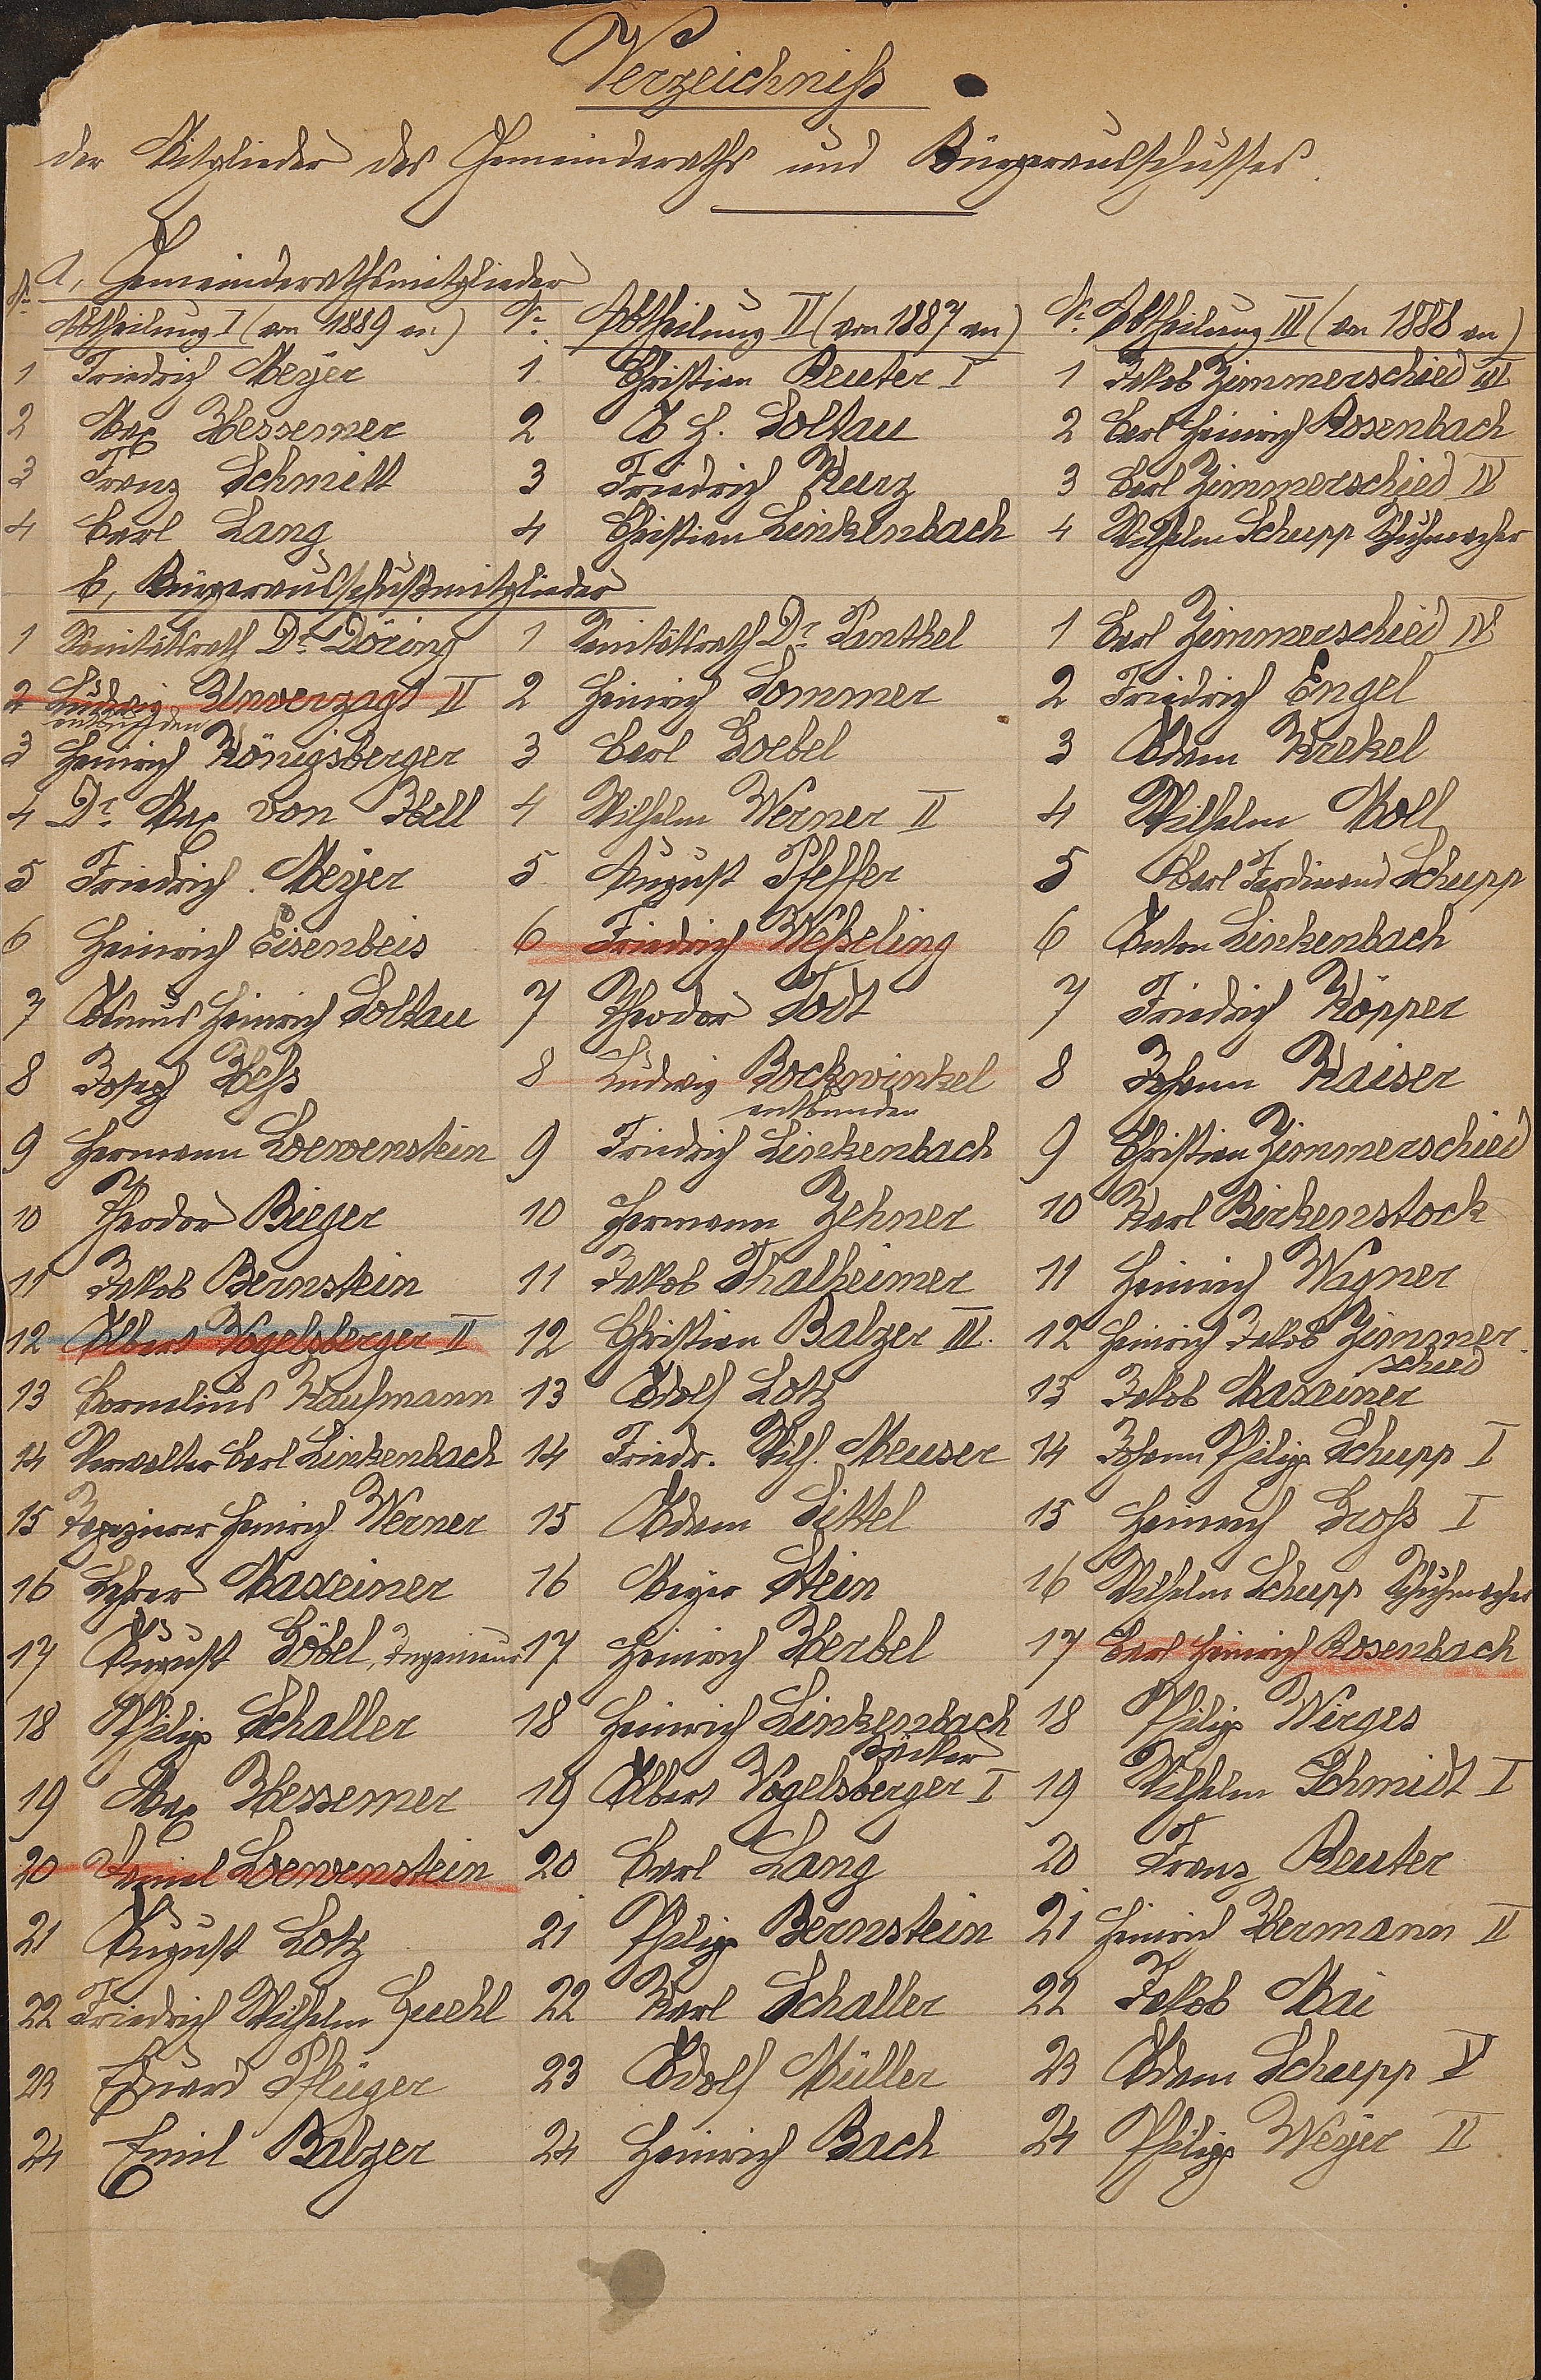 Verzeichniß
der Mitglieder des Gemeinderaths und Bürgerausschusses.
a, Gemeinderathsmitglieder
Nr. Abtheilung I (von 1889 an) Nr. Abtheilung II (von 1887 an) Nr. Abtheilung III (von 1888 an)
1 Friedrich Meyer 1 Christian Reuter I 1 Jakob Zimmerschied III
2 Max Hessemer 2 A H. Soltau 2 Carl Heinrich Rosenbach
3 Franz Schmitt 3 Friedrich Kurz 3 Carl Zimmerschied IV
4 Carl Lang 4 Christian Linkenbach 4 Wilhelm Schupp Schuhmacher
b, Bürgerausschußmitglieder
1 Sanitätsrath Dr. Döring 1 Sanitätsrath Dr. Panthel 1 Carl Zimmerschied IV
2 Ludwig Unverzagt II 2 Heinrich Sommer 2 Friedrich Engel
entbunden
3 Heinrich Königsberger 3 Carl Goebel 3 Adam Krekel
4 Dr. Max von Ibell 4 Wilhelm Werner II 4 Wilhelm Noll
5 Friedrich Meyer 5 August Pfeffer 5 Carl Ferdinand Schupp
6 Heinrich Eisenbeis 6 Friedrich Weßeling 6 Anton Linkenbach
7 Asmus Heinrich Soltau 7 Theodor Todt 7 Friedrich Köpper
8 Joseph Heß 8 Ludwig Bockwinkel 8 Johann Kaiser
entbunden
9 Hermann Loewenstein 9 Friedrich Linkenbach 9 Christian Zimmerschied
10 Theodor Bieger 10 Hermann Zehner 10 Karl Birkenstock
11 Jakob Bernstein 11 Jakob Thalheimer 11 Heinrich Wagner
12 Albert Vogelsberger II 12 Christian Balzer III. 12 Heinrich Jakob Zimmer
schied
13 Cornelius Kaufmann 13 Adolf Lotz 13 Jakob Maxeiner
14 Verwalter Carl Linkenbach 14 Friedr. Wilh. Meuser 14 Johann Philipp Schupp I
15 Tapezierer Heinrich Werner 15 Adam Sittel 15 Heinrich Groß I
16 Lehrer Maxeiner 16 Meyer Stein 16 Wilhelm Schupp Schuhmacher
17 August Göbel, Ingenieur 17 Heinrich Herbel 17 Carl Heinrich Rosenbach
18 Philipp Schaller 18 Heinrich Linkenbach 18 Philipp Wirges
Bäcker
19 Max Hessemer 19 Albert Vogelsberger I 19 Wilhelm Schmidt I
20 Daniel Loewenstein 20 Carl Lang 20 Franz Reuter
21 August Lotz 21 Philipp Bernstein 21 Heinrich Hermann II
22 Friedrich Wilhelm Guehl 22 Karl Schaller 22 Jakob Mai
23 Eduard Pflüger 23 Adolf Müller 23 Adam Schupp V
24 Emil Balzer 24 Heinrich Bach 24 Philipp Weyer II